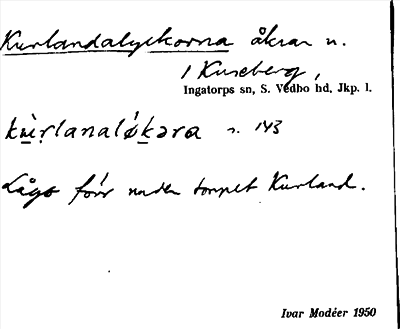 Kurlandalyckorna åkrar n.
1 Kuseberg,
Ingatorps sn, S. Vedbo hd, Jkp. l.
kùrlanalókara n. 143
Lågo förr under torpet Kurland.
Ivar Modéer 1950